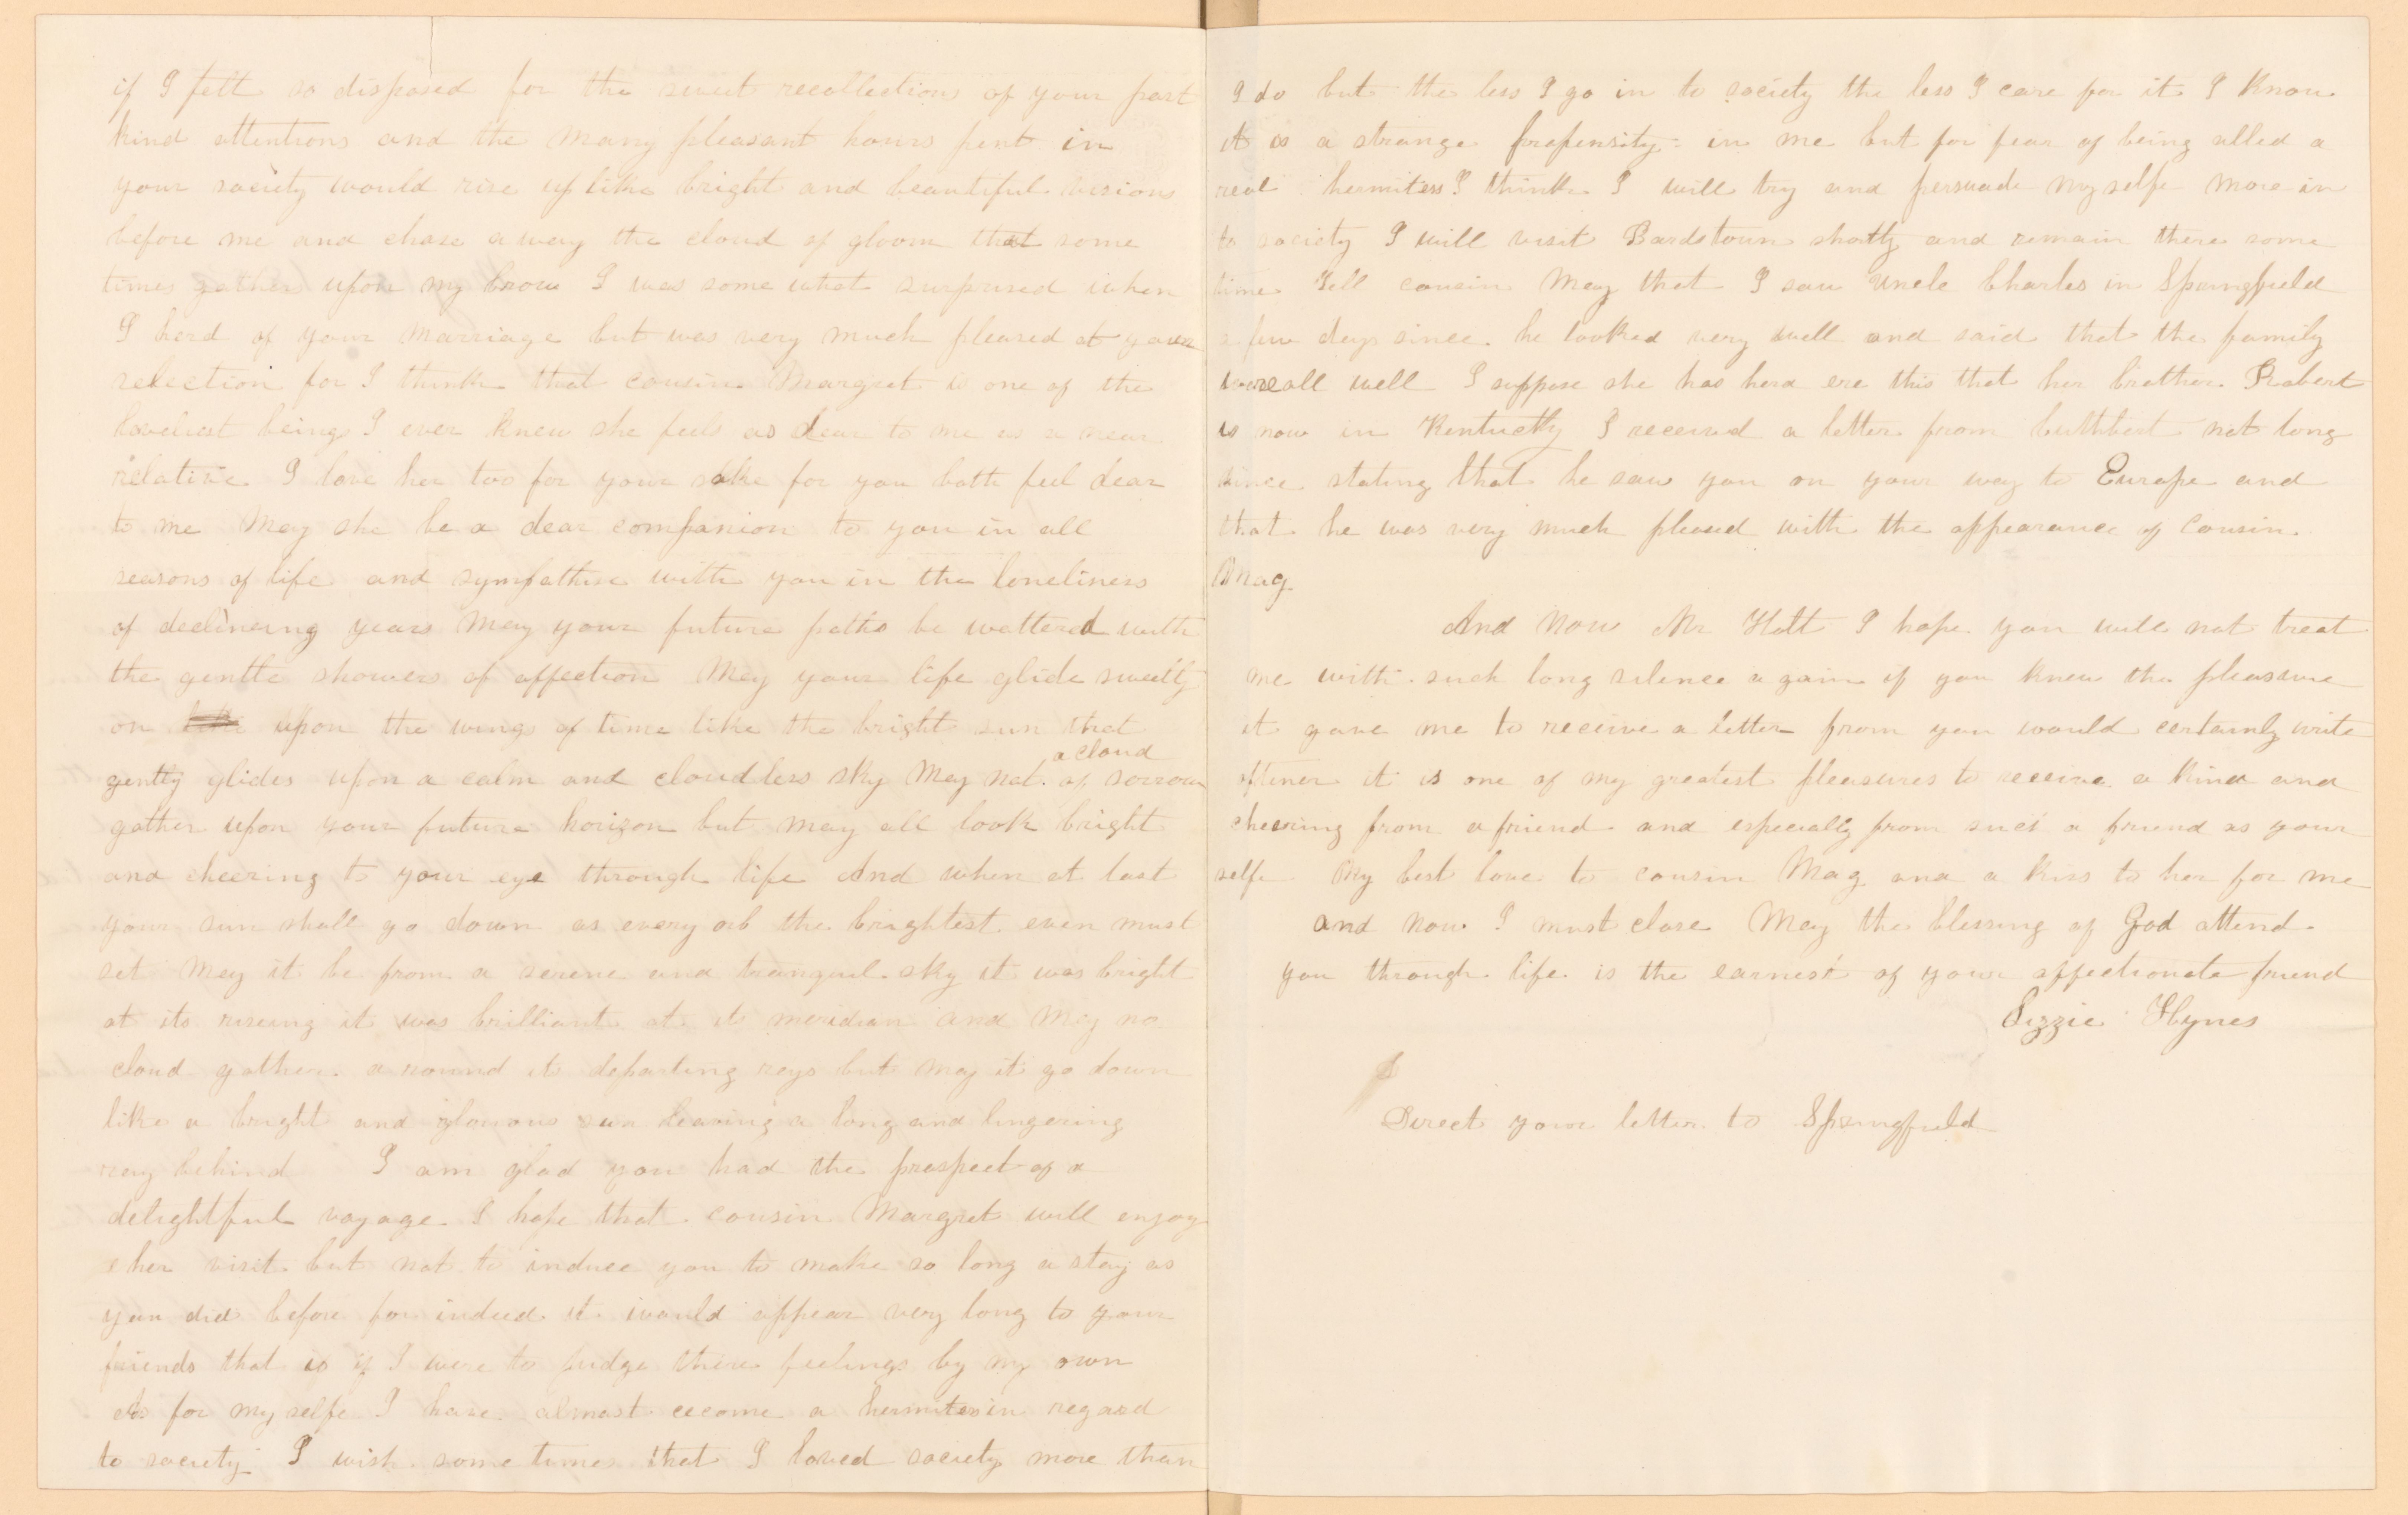 if I felt so disposed for the sweet recollections of your past
kind attentions and the many pleasant hours pent in
your society would rise up like bright and beautiful visions
before me and chase a way the cloud of gloom that some
times gather upon my brow I was some what surprised when
I herd of your marriage but was very much pleased at your
selection for I think that cousin Margret is one of the
loveliest beings I ever knew she feels as dear to me as a near
relative I love her too for your sake for you both feel dear
to me May she be a dear companion to you in all
seasons of life and sympathise with you in the loneliness
of declineing years May your future paths be wattered with
the gentle showers of affection May your life glide sweetly
on like upon the wings of time like the bright sun that
gently glides upon a calm and cloudless sky May not a cloud of sorrow
gather upon your future horizon but may all look bright
and cheering to your eye through life And when at last
your sun shall go down as every orb the brightest even must
set May it be from a serene and tranquil sky it was bright
at its riseing it was brilliant at its meridian and May no
cloud gather a round its departing rays but may it go down
like a bright and glorious sun leaving a long and lingering
ray behind I am glad you had the prospect of a
delightful voyage I hope that cousin Margret will enjoy
her visit but not to induce you to make so long a stay as
you did before for indeed it would appear very long to your
friends that is if I were to judge there feelings by my own
As for my selfe I have almost ecome a hermitess in regard
to society I wish some times that I loved society more than
I do but the less I go in to society the less I care for it I know
it is a strange propensity in me but for fear of being alled a
real hermitess I think I will try and persuade my selfe more in
to society I will visit Bardstown shortly and remain there some
time Tell cousin Mag that I saw Uncle Charles in Springfield
a few days since he looked very well and said that the family
were all well I suppose she has herd ere this that her brother Robert
is now in Kentucky I received a letter from Cuthbert not long
since stating that he saw you on your way to Europe and
that he was very much pleased with the appearance of Cousin
Mag.
And now Mr Holt I hope you will not treat
me with such long silence a gain if you knew the pleasure
it gave me to receive a letter from you would certainly write
oftener it is one of my greatest pleasures to receive a kind and
cheering from a friend and especially from such a friend as your
selfe My best love to cousin Mag and a kiss to her for me
and now I must close May the blessing of God attend
you through life is the earnest of your affectionate friend
Lizzie Hynes
Direct your letter to Springfield